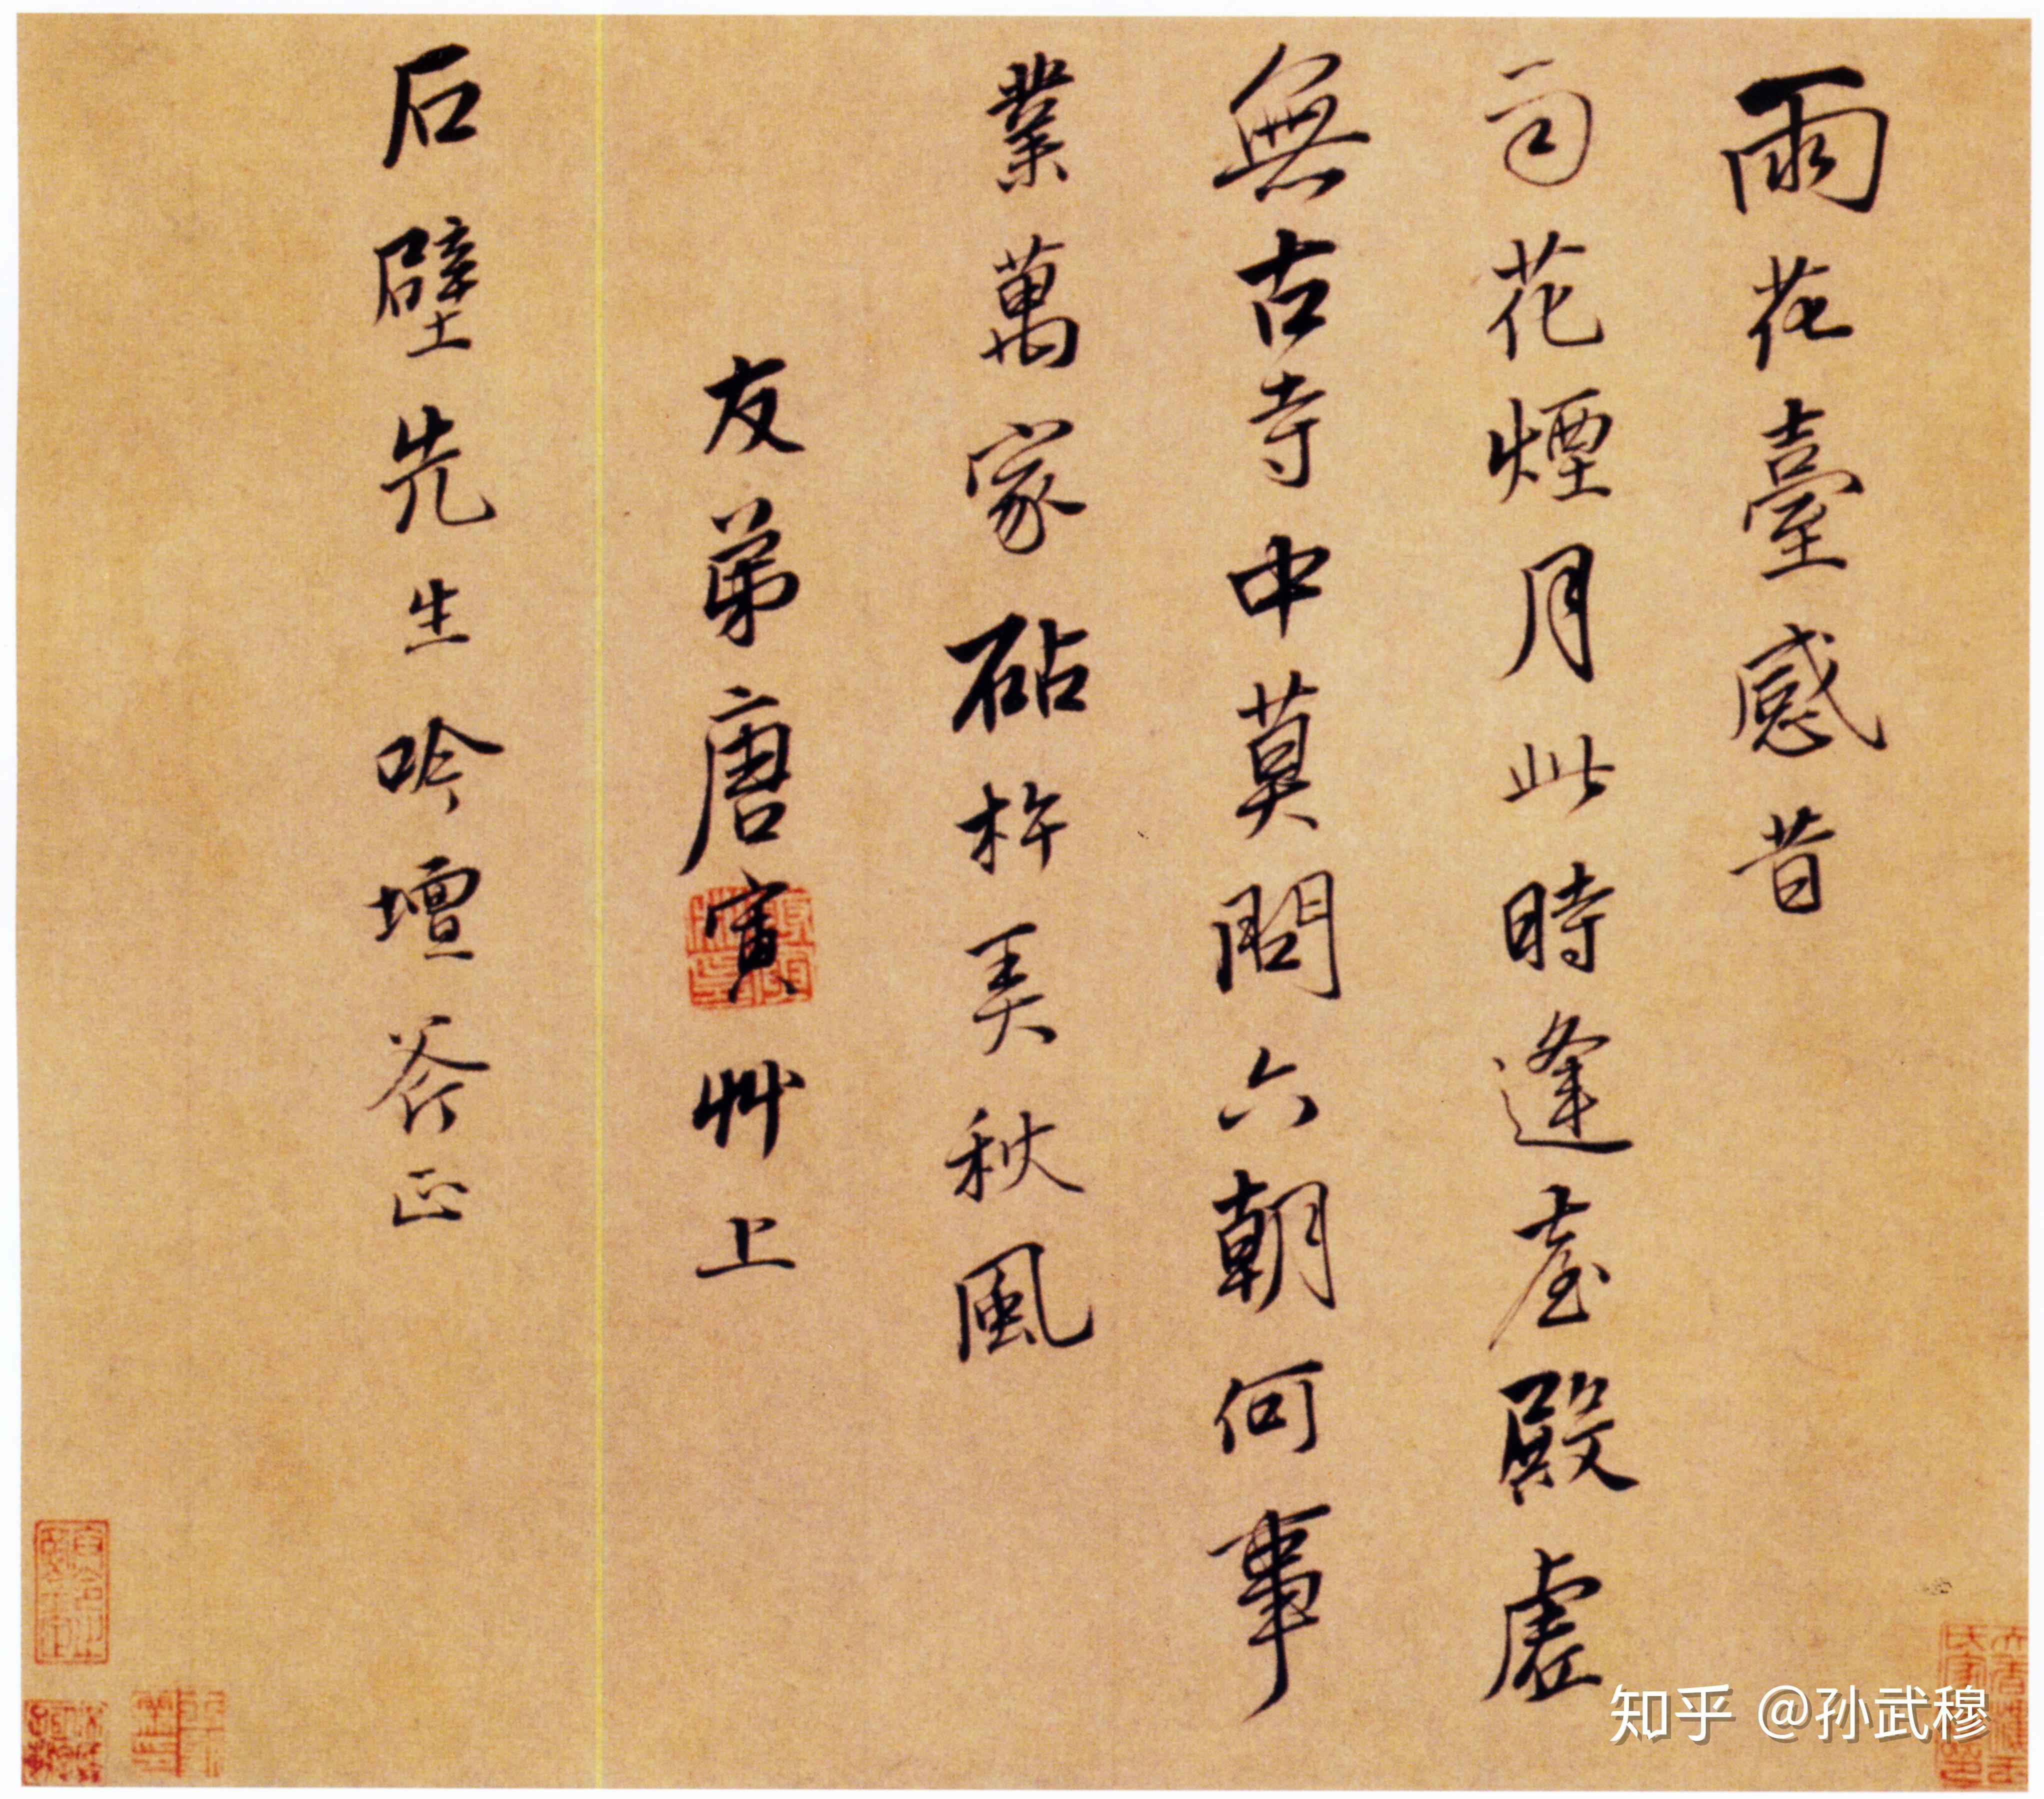 雨花臺感昔
花煙月此時逢臺殿虛
無古寺中莫問六朝何事
業萬家砧杵弄秋風
友弟唐寅艸上
石壁先生吟壇斧正
知乎 @孙武穆